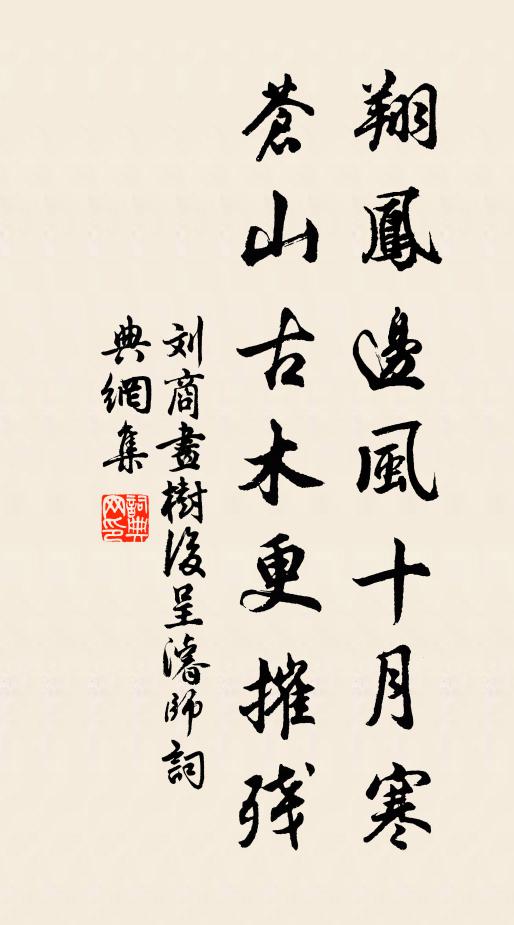 翔鳳邊風十月寒
蒼山古木更摧残
刘商畫樹後呈濬師詞
典網集
詞典網印